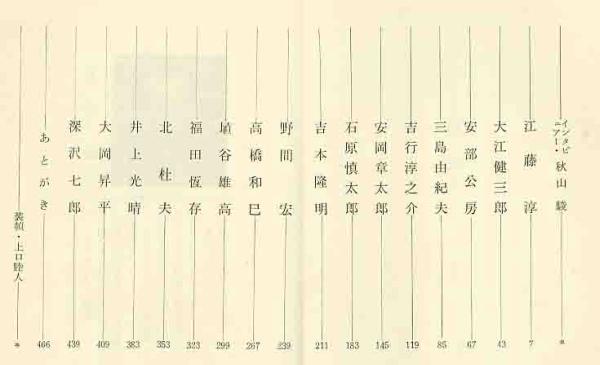 インタビュアー・秋山駿
江藤淳 7
大江健三郎 43
安部公房 67
三島由紀夫 85
吉行淳之介 119
安岡章太郎 145
石原慎太郎 183
吉本隆明 211
野間宏 239
高橋和巳 267
埴谷雄高 299
福田恆存 323
北杜夫 353
井上光晴 383
大岡昇平 409
深沢七郎 439
あとがき 466
装幀・上口睦人